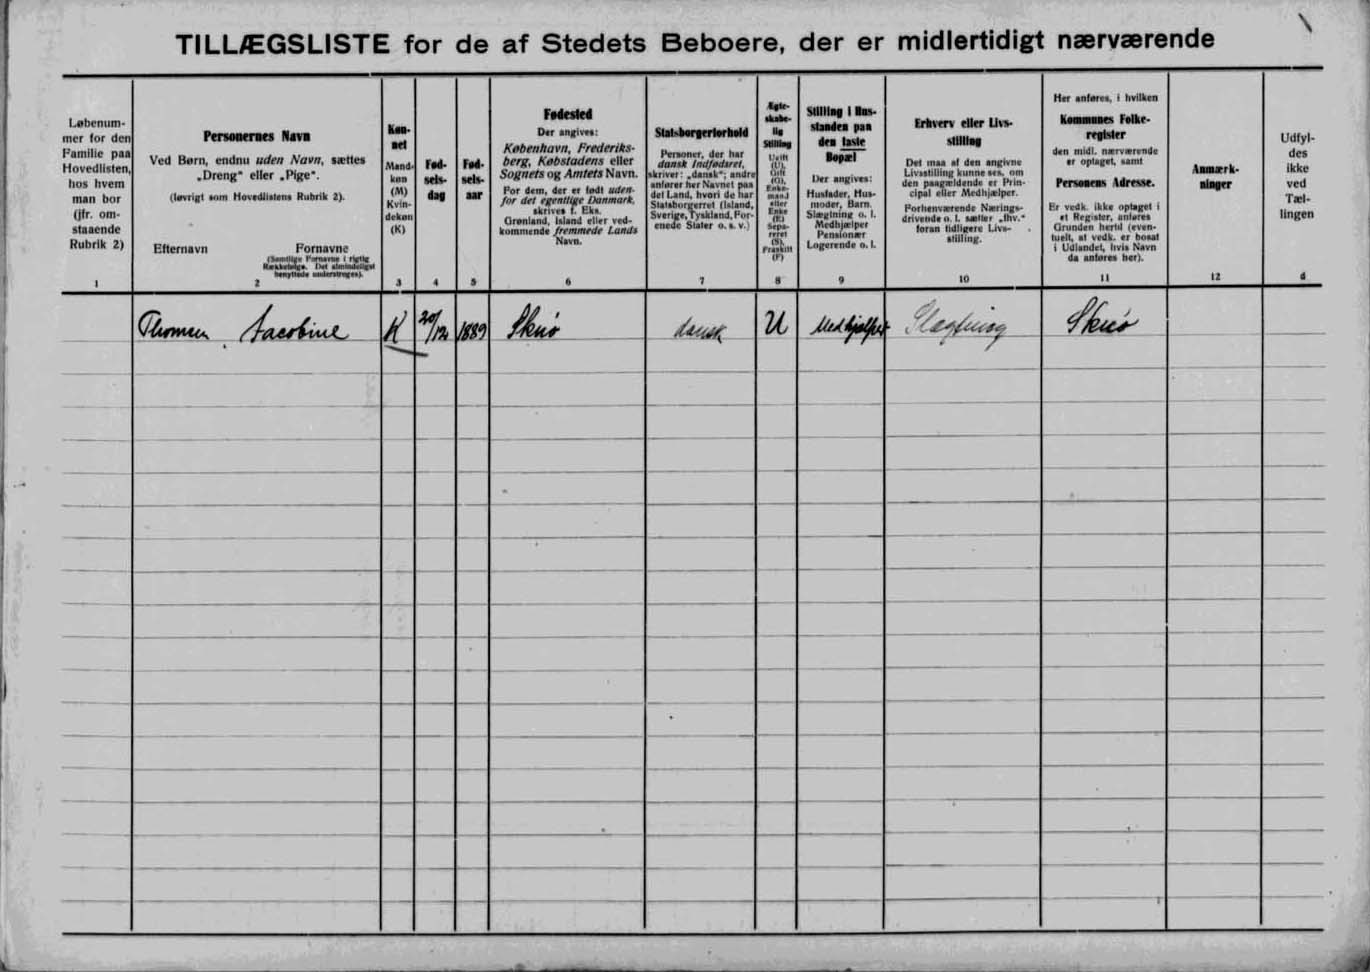 TILLÆGSLISTE for de af Stedets Beboere, der er midlertidigt nærværende
Løbenum-
mer for den
Familie paa
Hovedlisten,
hos hvem
man bor
(jfr. om-
staaende
Rubrik 2)
1
Personernes Navn
Ved Børn, endnu uden Navn, sættes
„Dreng“ eller „Pige“.
(Iøvrigt som Hovedlistens Rubrik 2).
Efternavn Fornavne
(Samtlige Fornavne i rigtig
Rækkefølge. Det almindeligst
benyttede understreges).
2
Køn-
net
Mand-
køn
(M)
Kvin-
dekøn
(K)
3
Fød-
sels-
dag
4
Fød-
sels-
aar
5
Fødested
Der angives:
København, Frederiks-
berg, Købstadens eller
Sognets og Amtets Navn.
For dem, der er født uden-
for det egentlige Danmark,
skrives f. Eks.
Grønland, Island eller ved-
kommende fremmede Lands
Navn.
6
Statsborgerforhold
Personer, der har
dansk Indfødsret,
skriver: „dansk“; andre
anfører her Navnet paa
det Land, hvori de har
Statsborgerret (Island,
Sverige, Tyskland, For-
enede Stater o. s. v.)
7
Ægte-
skabe-
lig
Stilling
Ugift
(U),
Gift
(G),
Enke-
mand
eller
Enke
(E)
Sepa-
reret
(S),
Fraskilt
(F)
8
Stilling i Hus-
standen paa
den faste
Bopæl
Der angives:
Husfader, Hus-
moder, Barn,
Slægtning o. l.
Medhjælper
Pensionær
Logerende o. l.
9
Erhverv eller Livs-
stilling
Det maa af den angivne
Livsstilling kunne ses, om
den paagældende er Prin-
cipal eller Medhjælper.
Forhenværende Nærings-
drivende o. l. sætter „fhv.“
foran tidligere Livs-
stilling.
10
Her anføres, i hvilken
Kommunes Folke-
register
den midl. nærværende
er optaget, samt
Personens Adresse.
Er vedk. ikke optaget i
et Register, anføres
Grunden hertil (even-
tuelt, at vedk. er bosat
i Udlandet, hvis Navn
da anføres her).
11
Anmærk-
ninger
12
Udfyl-
des
ikke
ved
Tæl-
lingen
d
Thomsen, Jacobine K 20/12 1889 Skuø dansk U Medhjælper Slægtning Skuø